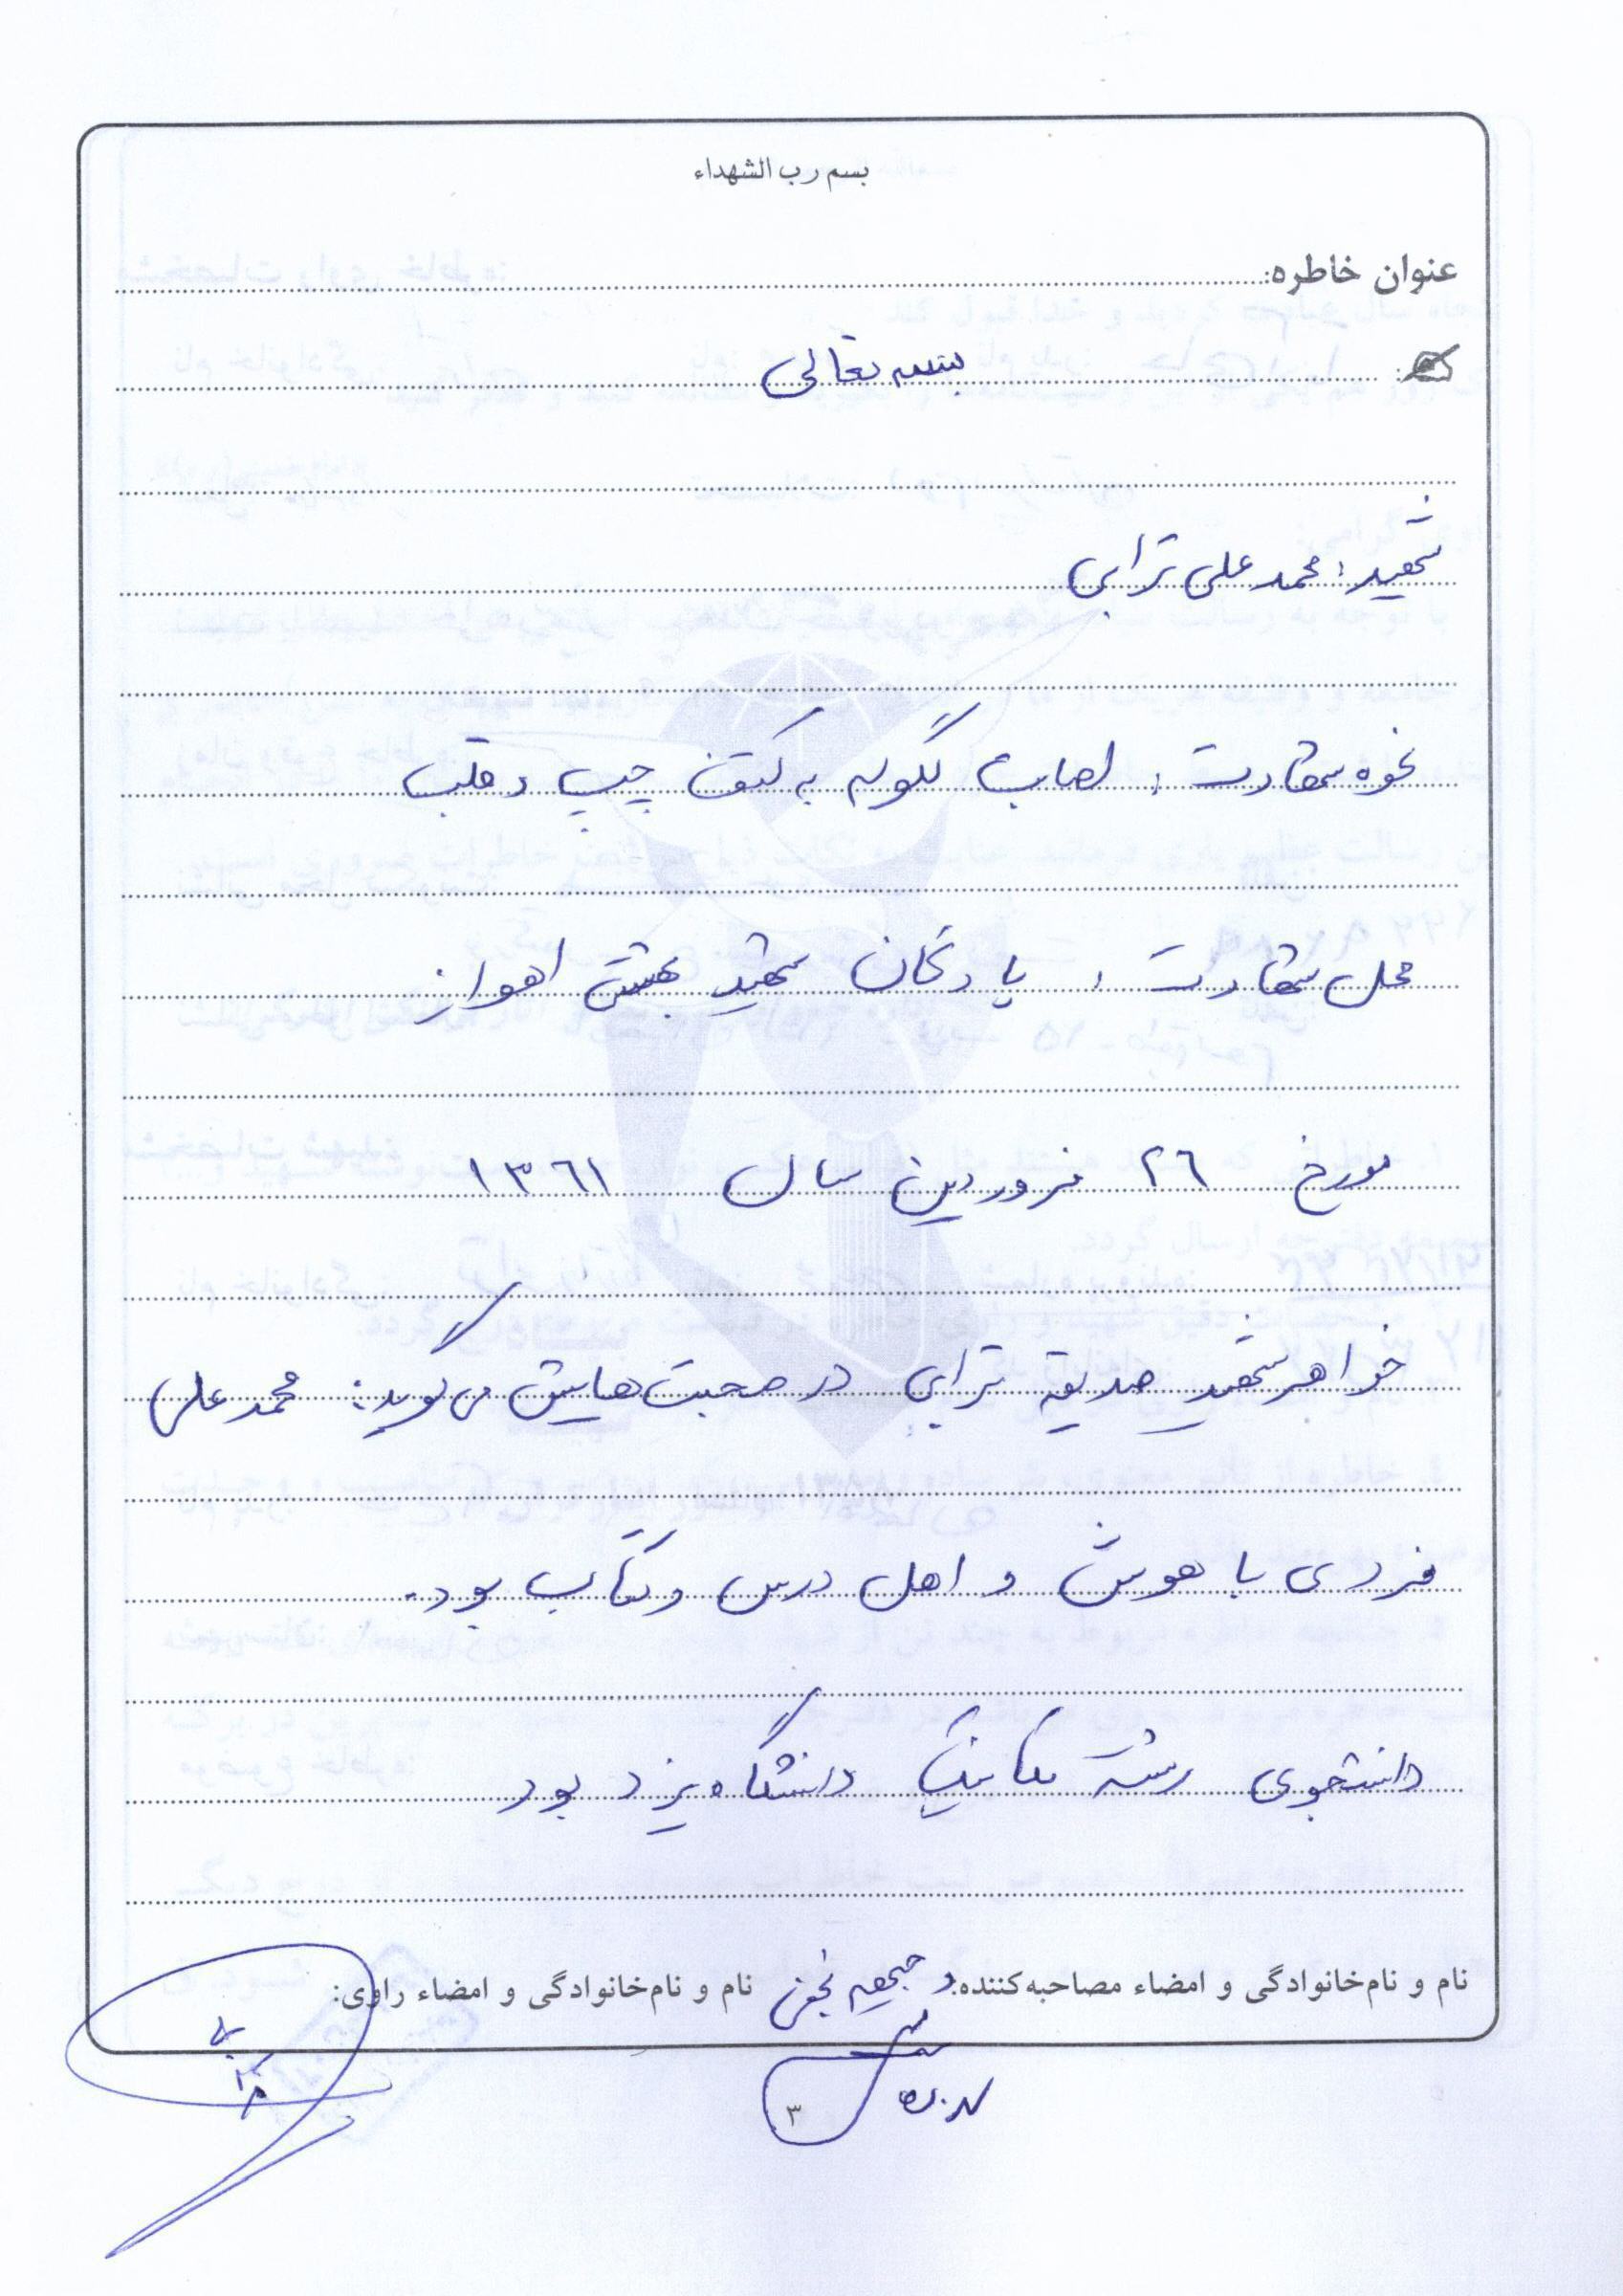 بسم رب الشهداء
عنوان خاطره:
بسمه تعالی
شهید: محمد علی ترابی
نحوه شهادت: اصابت گلوله به کتف چپ و قلب
محل شهادت: پادگان شهید بهشتی اهواز
مورخ ۲۶ فروردین سال ۱۳۶۱
خواهر شهید صدیقه ترابی در صحبت‌هایش می‌گوید: محمد علی
فردی با هوش و اهل درس و کتاب بود.
دانشجوی رشته مکانیک دانشگاه یزد بود
نام و نام‌خانوادگی و امضاء مصاحبه‌کننده: نام و نام‌خانوادگی و امضاء راوی:
۳